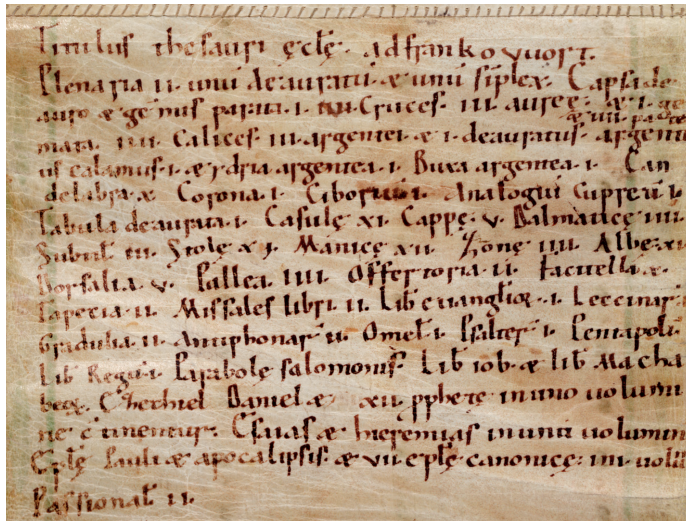 Titulus thesauri ęclę. ad franko vurt.
Plenaria .ii. unū deauratū & unū siplex. Capsa de
auro & gēmis parata .i. Cruces .iii. aureę. & .i. ge
& .iiii. paratę
mata. .iiii. Calices .iii. argentei & .i. deauratus argente
us calamus .i. & ydria argentea .i. Buxa argentea .i. Can
delabra .x. Corona .i. Ciboriū .i. Analogiū Cupreū .i.
Tabula deaurata .i. Casulę .xi. Cappę .v. Dalmaticę .iiii.
Subuł. .iii. Stolę .x. Manicę .xii. Zonę .iiii. Albę .xi
Dorsalia .v. Pallea .iiii. Offertoria .ii. facitella .x.
Tapetia .ii. Missales libri .ii. Lib euangliorꝝ .i. Lectionar̄ .i
Gradualia .ii. Antiphonar̄ .ii. Omeł .i. Psalter̄ .i. Pentapoli
Lib Regū .i. Parabolę salomonis. Lib iob. & lib Macha
beoꝝ. Ezechiel Daniel & .xii. ꝓphetę in uno uolumi
ne ctinentur. Esaias & hieremias in uno uolumin
Eplę Pauli & apocalipsis. & .vii. eplę canonicę. .iii. uolū
Passionał .ii.